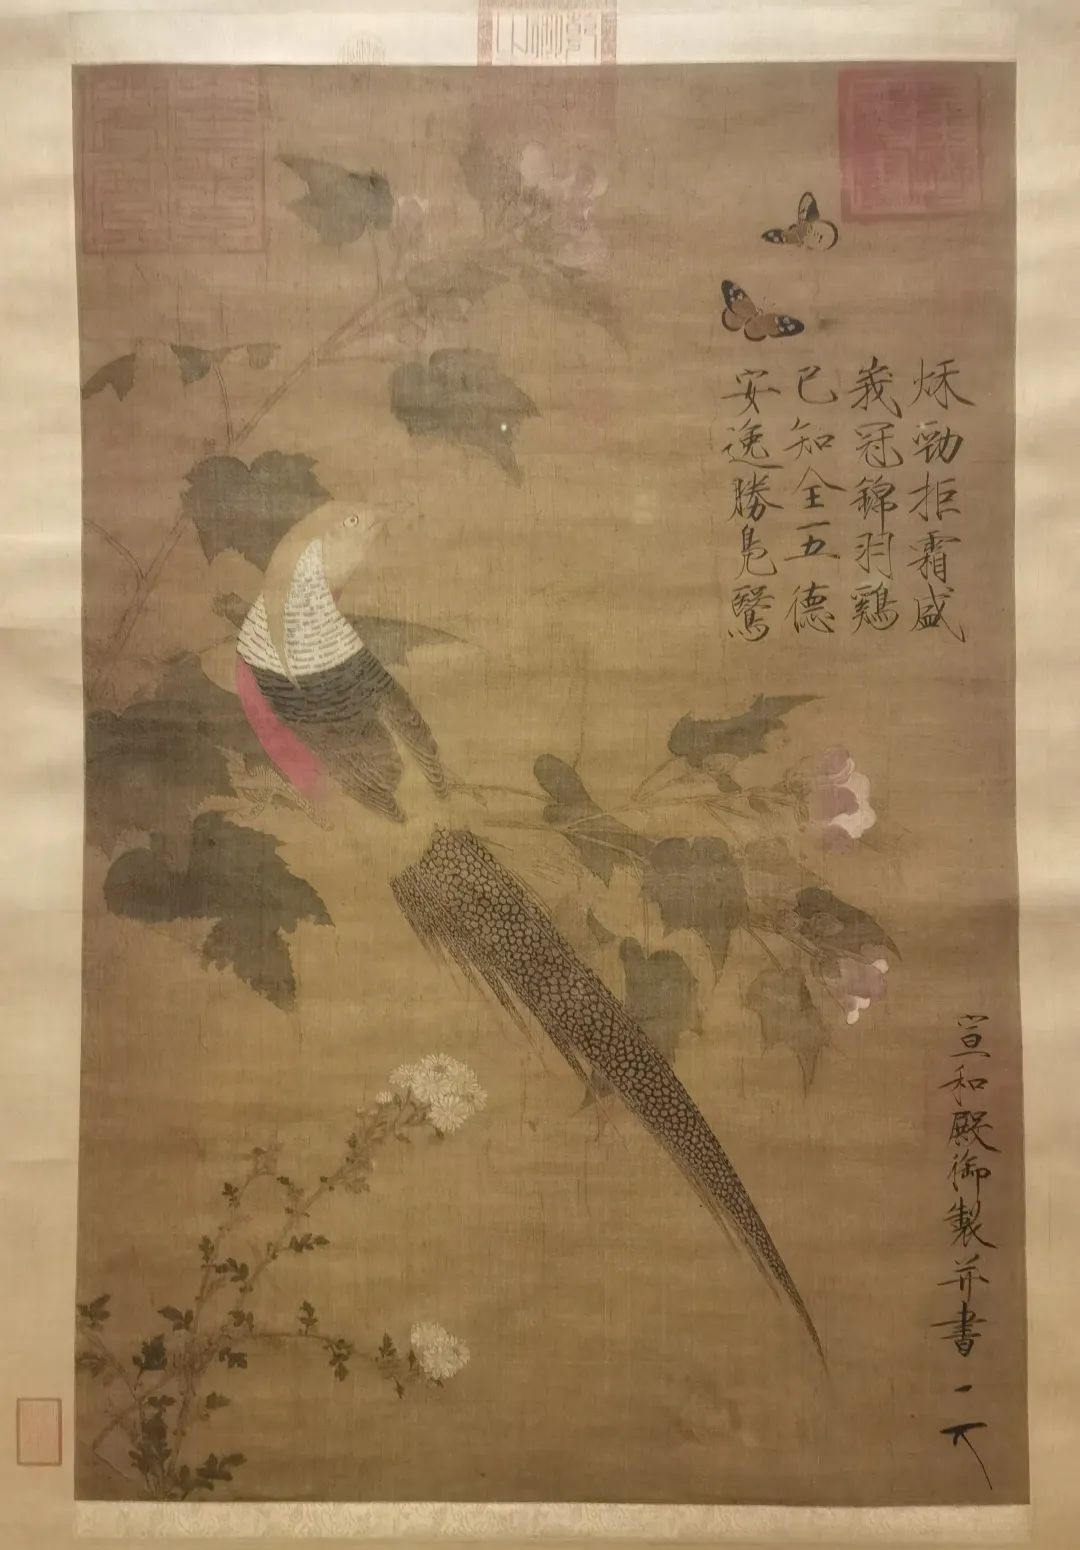 秌勁拒霜盛
莪冠錦羽鷄
已知全五德
安逸勝鳬鷖
宣和殿御製并書